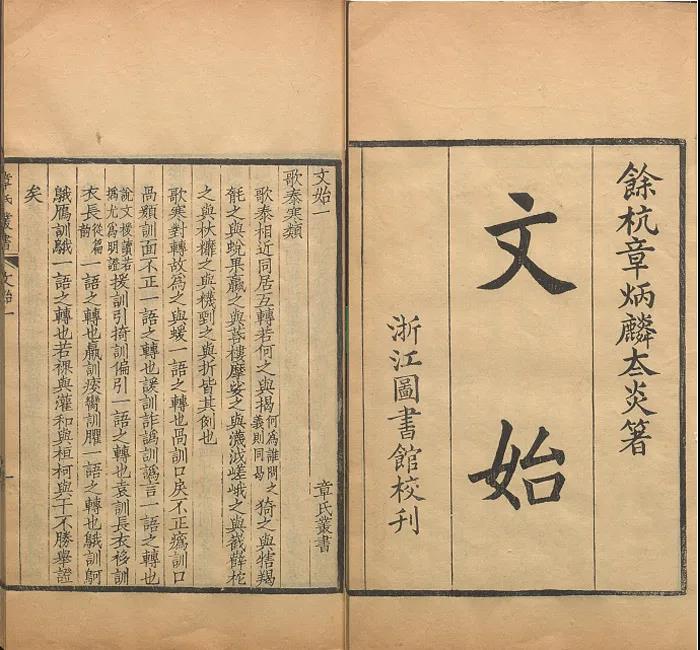 餘杭章炳麟太炎箸
文始
浙江圖書館校刊
文始一
章氏叢書
歌泰寒類
歌泰相近同居互轉若何之與揭何爲誰問之義則同曷猗之與㹇羯
之與蛻果蠃之與苦樓摩娑之與瀎泧嵯峨之與巀嶭柁
之與杕糠之與機㔁之與折皆其例也
歌寒對轉故爲之與蝯一語之轉也咼訓口戾不正㾨訓口
咼類訓面不正一語之轉也諼訓詐譌訓譌言一語之轉也
說文援讀若撝尤爲明證援訓引掎訓偏引一語之轉也袁訓長衣移訓
衣長從篇韵一語之轉也羸訓痠臠訓臞一語之轉也䳘訓䳓
䳘鴈訓䳘一語之轉也若祼與灌和與桓柯與干不勝舉證
矣
章氏叢書
文始一
一